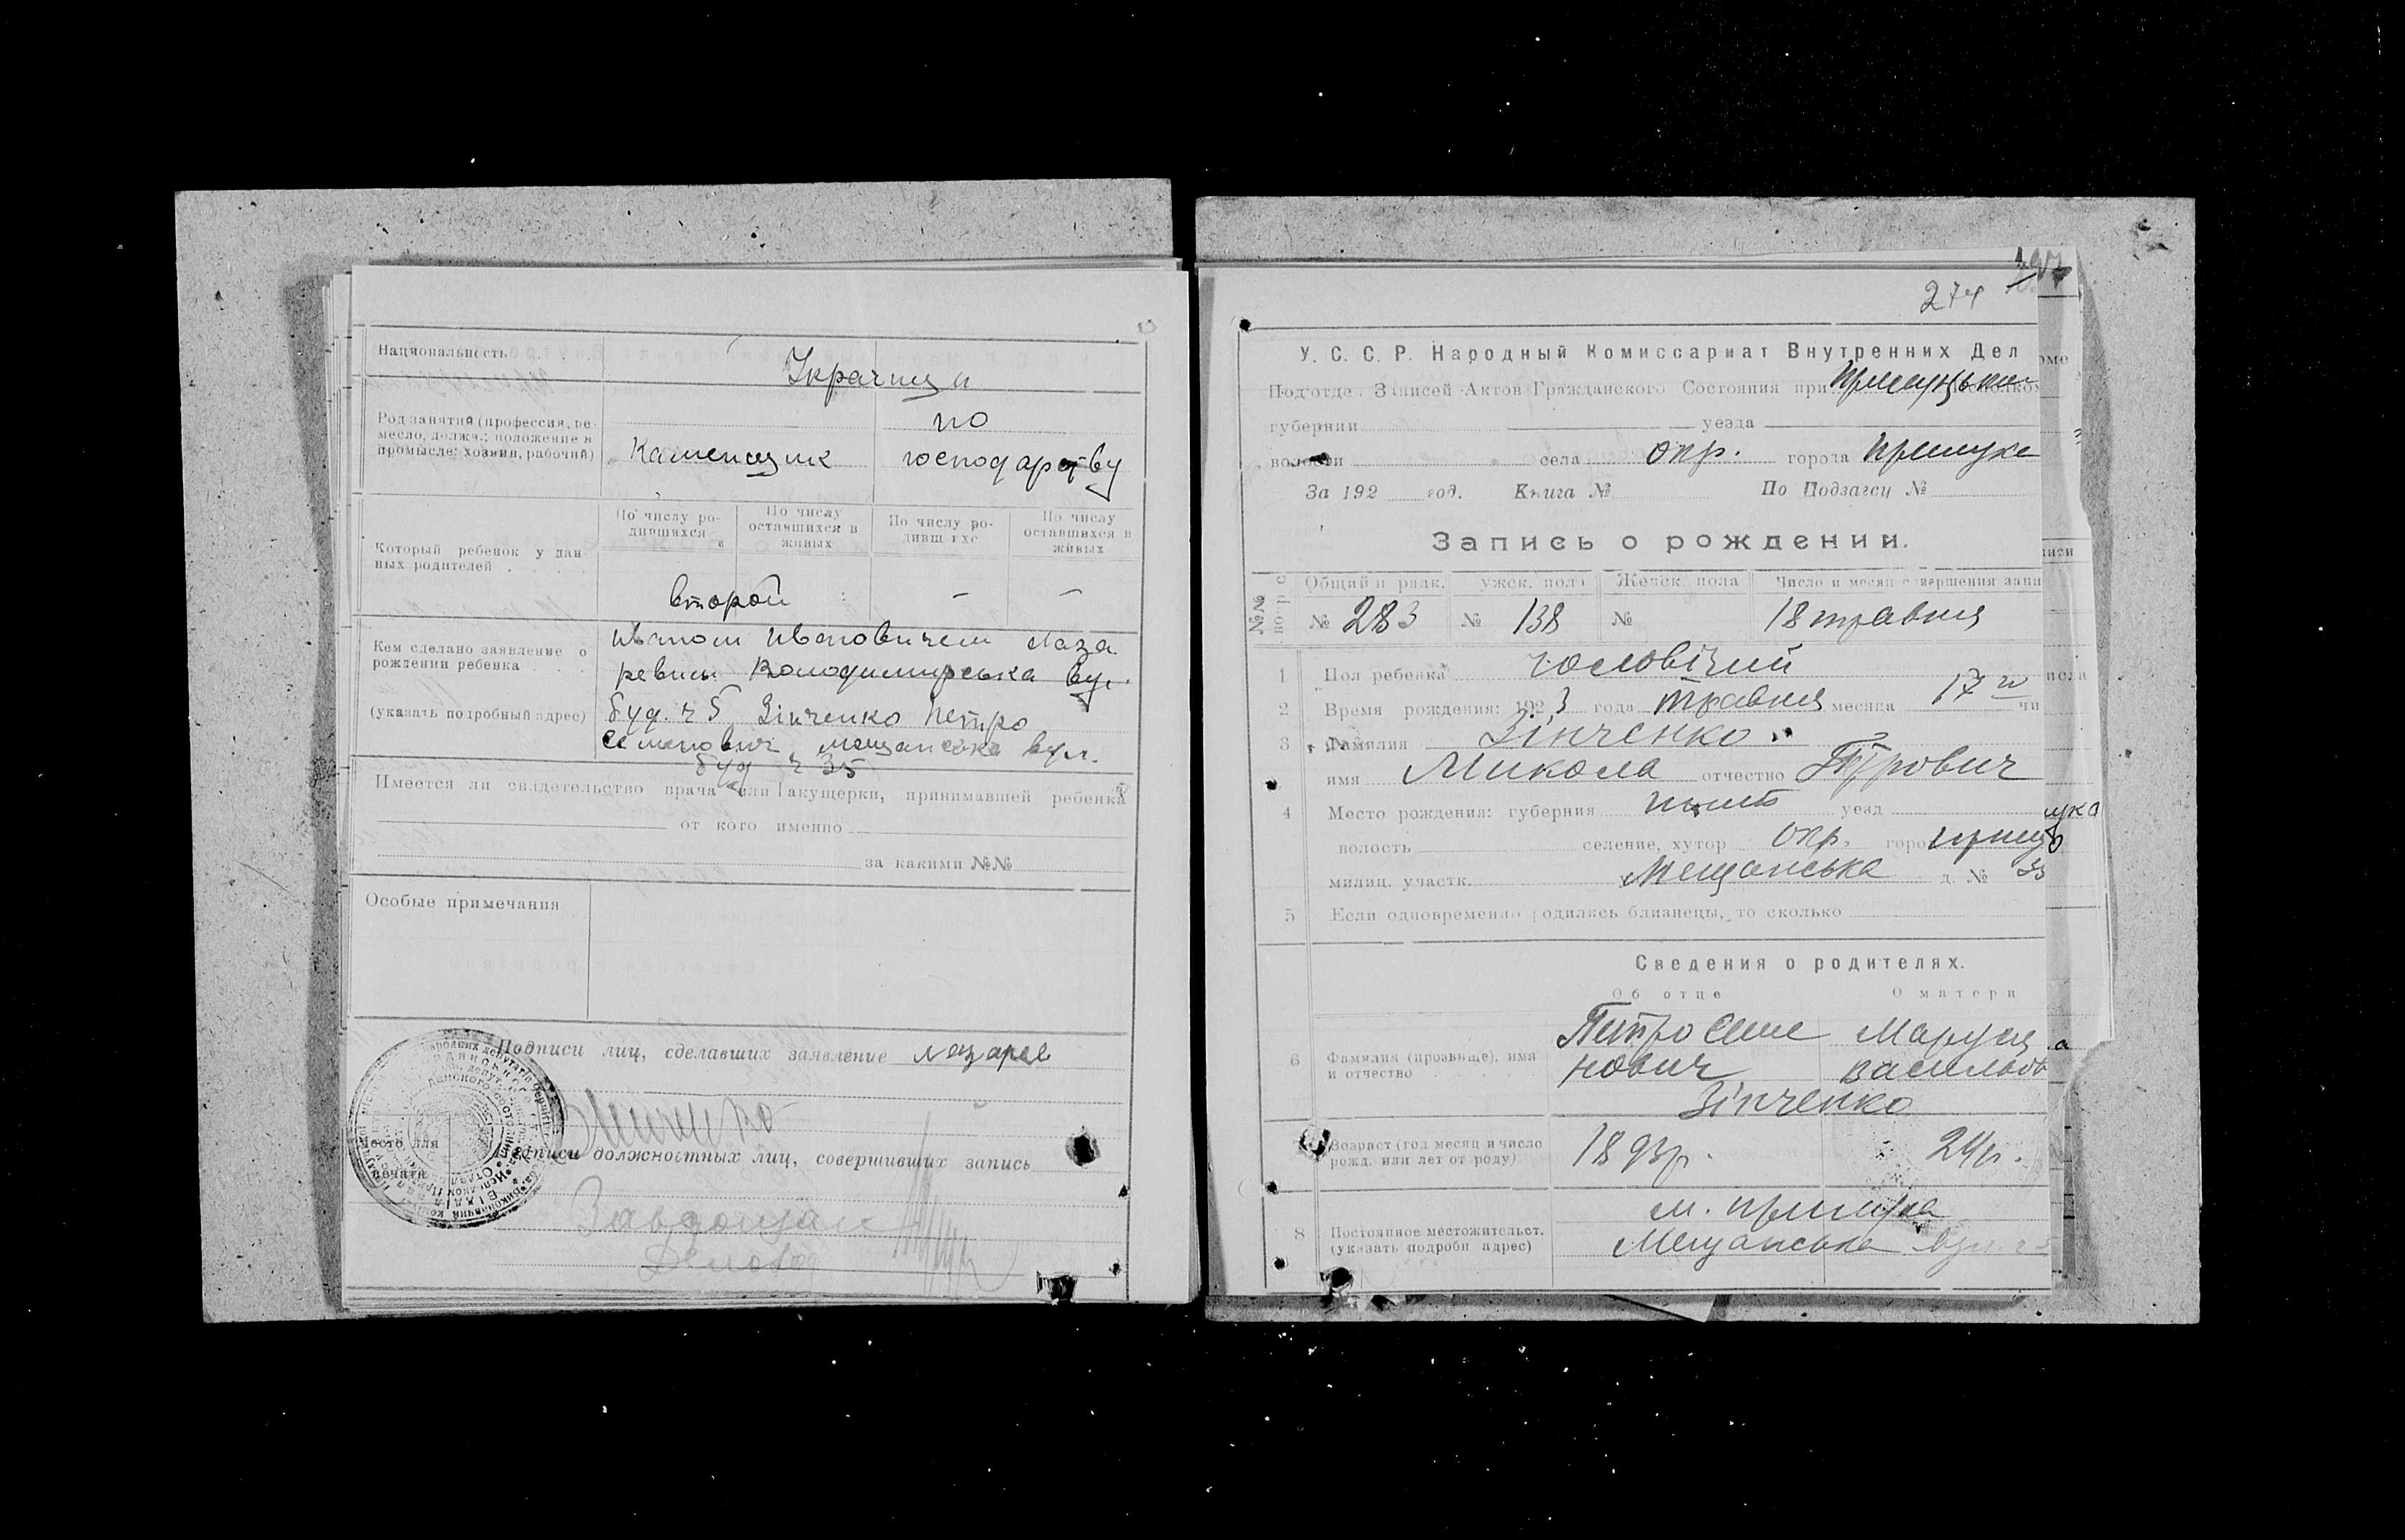 Национальность . . .
Українци
Род занятий (профессия, ре-
месло, должн.; положение в
промысле: хозяин, рабочий)
Каменщик
по
господарству
Который ребенок у дан-
ных родителей . . . .
По числу ро-
дившихся
По числу
оставшихся в
живых
По числу ро-
дивш хс
По числу
оставшихся в
живых
второй
—
—
Кем сделано заявление о
рождении ребенка . . .
(указать подробный адрес)
Иваном Ивановичем Лаза
ревич Володимирська вул.
буд. ч 5, Зінченко Петро
Семенович, Мещанська вул.
буд ч 35
Имеется ли свидетельство врача или акушерки, принимавшей ребенка
от кого именно
за какими №№
Особые примечания
Подписи лиц, сделавших заявление Лазарев
Зінченко
Место для
печати
Подписи должностных лиц, совершивших запись
Завзагсом
Діловод
274
У. С. С. Р. Народный Комиссариат Внутренних Дел
Подотдел Записей Актов Гражданского Состояния при
губернии уезда
волости села окр. города Прилуке
За 192 год. Книга № По Подзагсу №
Запись о рождении.
№№
Общий п рядк.
ужск. пола
Женск. пола
Число и месяц совершения запи
№ 283
№ 138
№
18 травня
1 Пол ребенка чоловічий
2 Время рождения: 1923 года травня месяца 17го чи
3 Фамилия Зінченко
имя Микола отчество Петрович
4 Место рождения: губерния уезд
волость селение, хутор окр. горо
милиц. участк. Мещанська д. № 35
5 Если одновременно родились близнецы, то сколько
Сведения о родителях.
Об отце
О матери
6 Фамилия (прозвище), имя
и отчество . . . . .
Петро Семе
нович
Маруся
Васильов
Зінченко
Возраст (год месяц и число
рожд. или лет от роду)
1893р.
24р.
8 Постоянное местожительст.
(указать подробн адрес)
м. Прилука
Мещанська вул